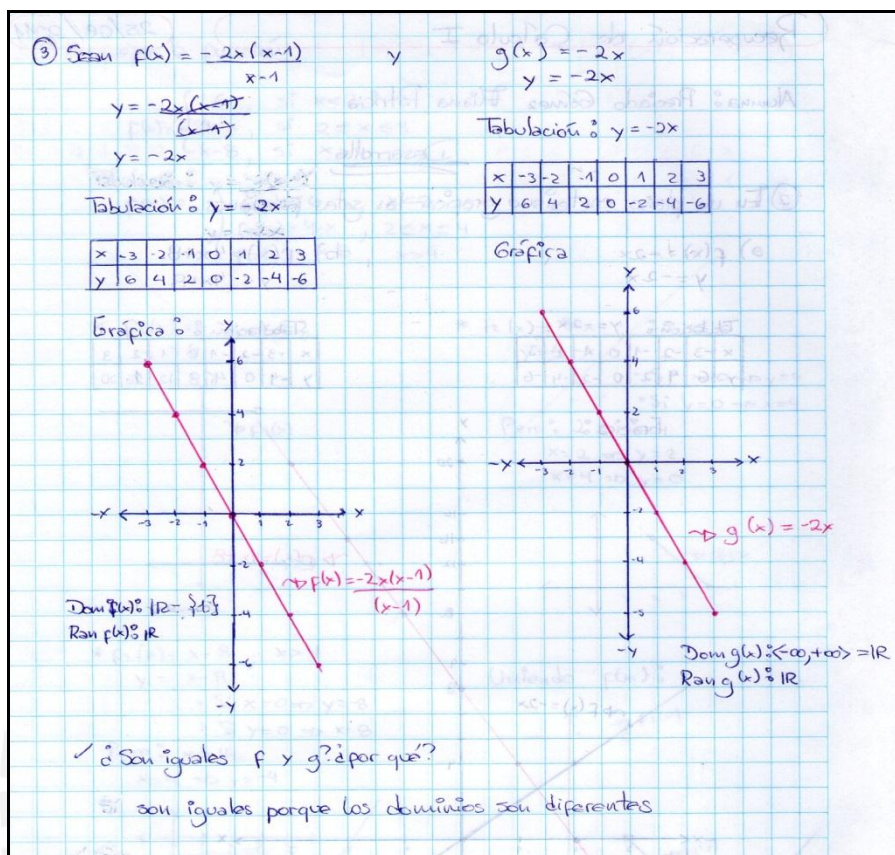 ③ Sean f(x) = -2x(x-1)
x-1
y = -2x(x-1)
(x-1)
y = -2x
Tabulación: y = -2x
x -3 -2 -1 0 1 2 3
y 6 4 2 0 -2 -4 -6
Gráfica:
Y
6
4
2
-X -3 -2 -1 1 2 3 X
-2
-4
-6
-Y
f(x) = -2x(x-1)
(x-1)
Dom f(x): IR - {1}
Ran f(x): IR
y
g(x) = -2x
y = -2x
Tabulación: y = -2x
x -3 -2 -1 0 1 2 3
y 6 4 2 0 -2 -4 -6
Gráfica
Y
6
4
2
-X -3 -2 -1 1 2 3 X
-2
-4
-Y
g(x) = -2x
Dom g(x): <-∞, +∞> = IR
Ran g(x): IR
✓ ¿Son iguales f y g? ¿por qué?
son iguales porque los dominios son diferentes